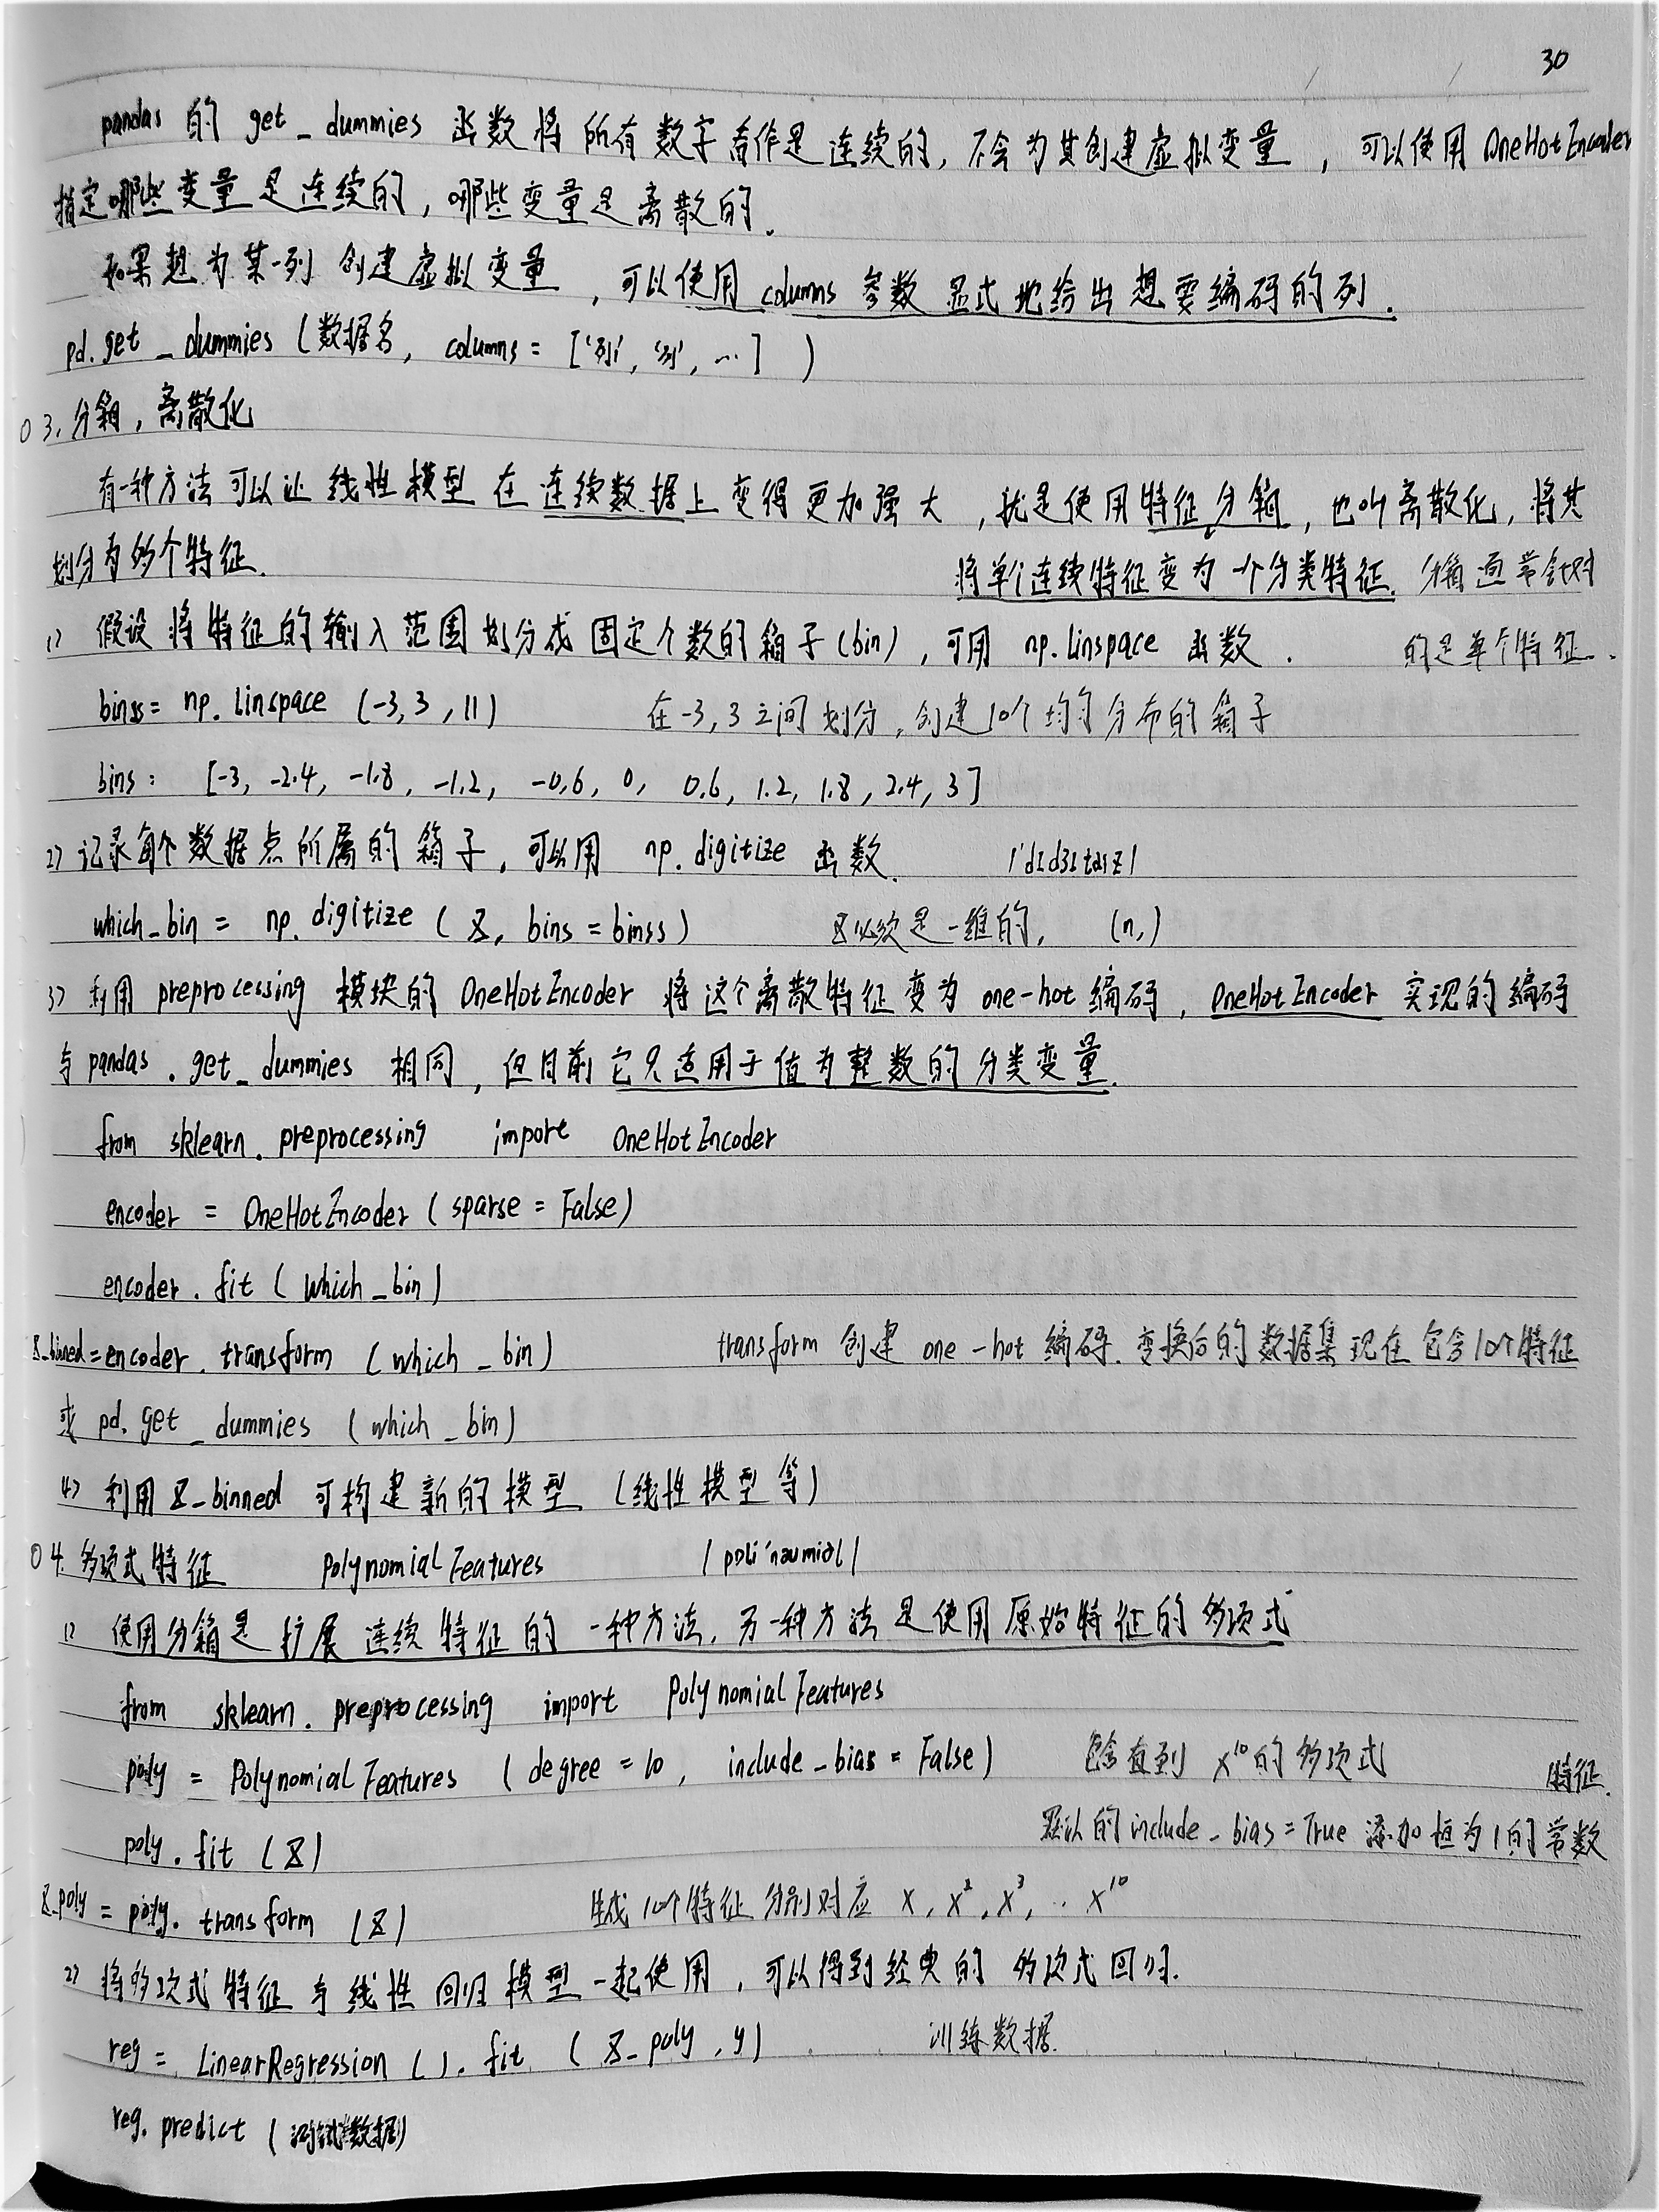 30
pandas 的 get_dummies 函数将所有数字看作是连续的,不会为其创建虚拟变量,可以使用 OneHotEncoder
指定哪些变量是连续的,哪些变量是离散的.
如果想为某一列创建虚拟变量,可以使用 columns 参数显式地给出想要编码的列.
pd.get_dummies (数据名, columns = ['列', '列', …] )
03. 分箱,离散化
有一种方法可以让线性模型在连续数据上变得更加强大,就是使用特征分箱,也叫离散化,将其
划分为多个特征. 将单个连续特征变为一个分类特征. 分箱通常针对
1) 假设将特征的输入范围划分成固定个数的箱子(bin),可用 np.linspace 函数. 的是单个特征.
binss = np.linspace (-3, 3, 11) 在-3, 3之间划分,创建10个均匀分布的箱子
bins: [-3, -2.4, -1.8, -1.2, -0.6, 0, 0.6, 1.2, 1.8, 2.4, 3]
2) 记录每个数据点所属的箱子,可以用 np.digitize 函数. /'dɪdʒɪtaɪz/
which_bin = np.digitize (X, bins = binss) X必须是一维的, (n,)
3) 利用 preprocessing 模块的 OneHotEncoder 将这个离散特征变为 one-hot 编码, OneHotEncoder 实现的编码
与 pandas.get_dummies 相同,但目前它只适用于值为整数的分类变量.
from sklearn.preprocessing import OneHotEncoder
encoder = OneHotEncoder (sparse = False)
encoder.fit (which_bin)
X_binned = encoder.transform (which_bin) transform 创建 one-hot 编码. 变换后的数据集现在包含10个特征
或 pd.get_dummies (which_bin)
4) 利用 X_binned 可构建新的模型 (线性模型等)
04. 多项式特征 PolynomialFeatures /pɒli'nəʊmiəl/
1) 使用分箱是扩展连续特征的一种方法,另一种方法是使用原始特征的多项式
from sklearn.preprocessing import PolynomialFeatures
poly = PolynomialFeatures (degree = 10, include_bias = False) 包含直到 x¹⁰ 的多项式 特征.
poly.fit (X) 默认的 include_bias = True 添加恒为1的常数
X_poly = poly.transform (X) 生成10个特征分别对应 x, x², x³, … x¹⁰
2) 将多项式特征与线性回归模型一起使用,可以得到经典的多项式回归.
reg = LinearRegression ().fit (X_poly, y) 训练数据.
reg.predict (测试数据)